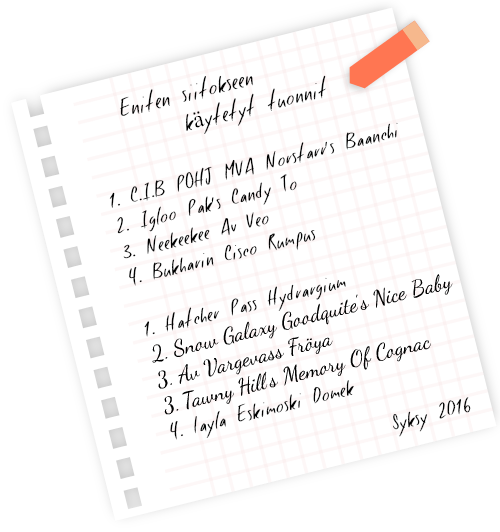 Eniten siitokseen
käytetyt tuonnit
1. C.I.B POHJ MVA Norstarr's Baanchi
2. Igloo Pak's Candy To
3. Neekeekee Av Veo
4. Bukharin Cisco Rumpus
1. Hatcher Pass Hydrargium
2. Snow Galaxy Goodquite's Nice Baby
3. Av Vargevass Fröya
3. Tawny Hill's Memory Of Cognac
4. Layla Eskimoski Domek
Syksy 2016